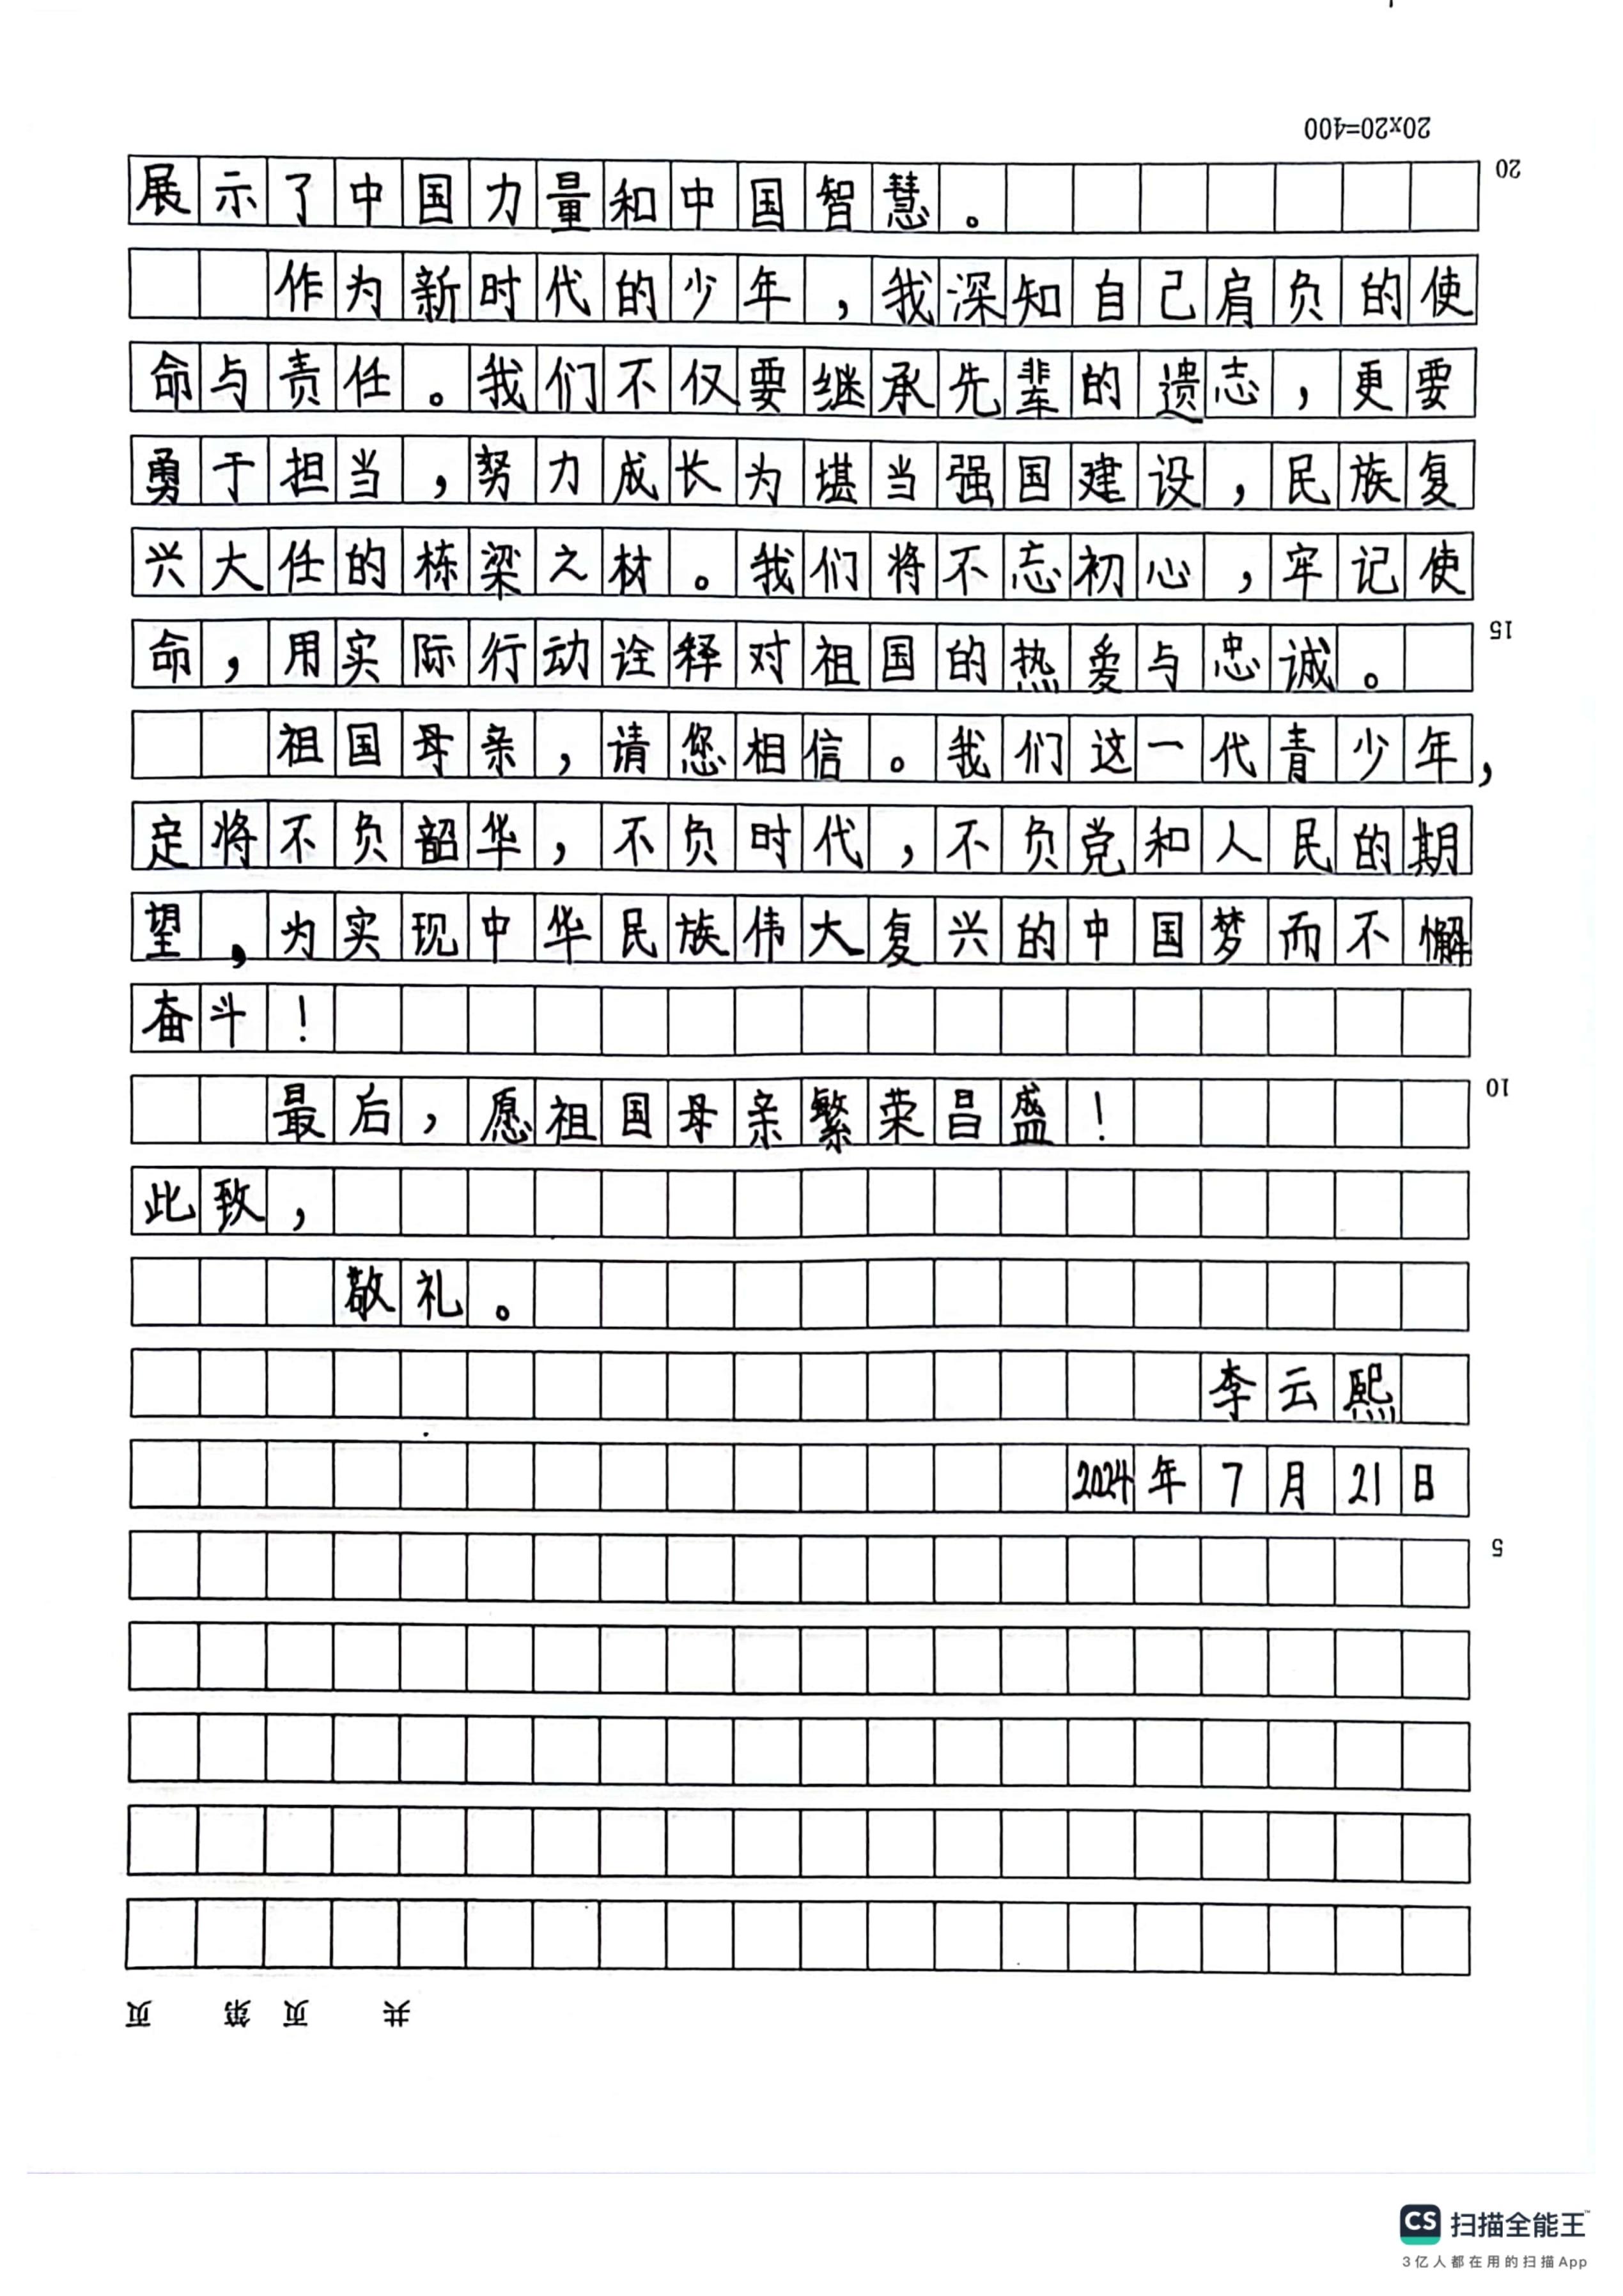 20x20=400
20
展示了中国力量和中国智慧。
作为新时代的少年，我深知自己肩负的使
命与责任。我们不仅要继承先辈的遗志，更要
勇于担当，努力成长为堪当强国建设，民族复
兴大任的栋梁之材。我们将不忘初心，牢记使
命，用实际行动诠释对祖国的热爱与忠诚。
15
祖国母亲，请您相信。我们这一代青少年，
定将不负韶华，不负时代，不负党和人民的期
望，为实现中华民族伟大复兴的中国梦而不懈
奋斗！
最后，愿祖国母亲繁荣昌盛！
10
此致，
敬礼。
李云熙
2024年7月21日
5
共 页 第 页
CS 扫描全能王™
3亿人都在用的扫描App